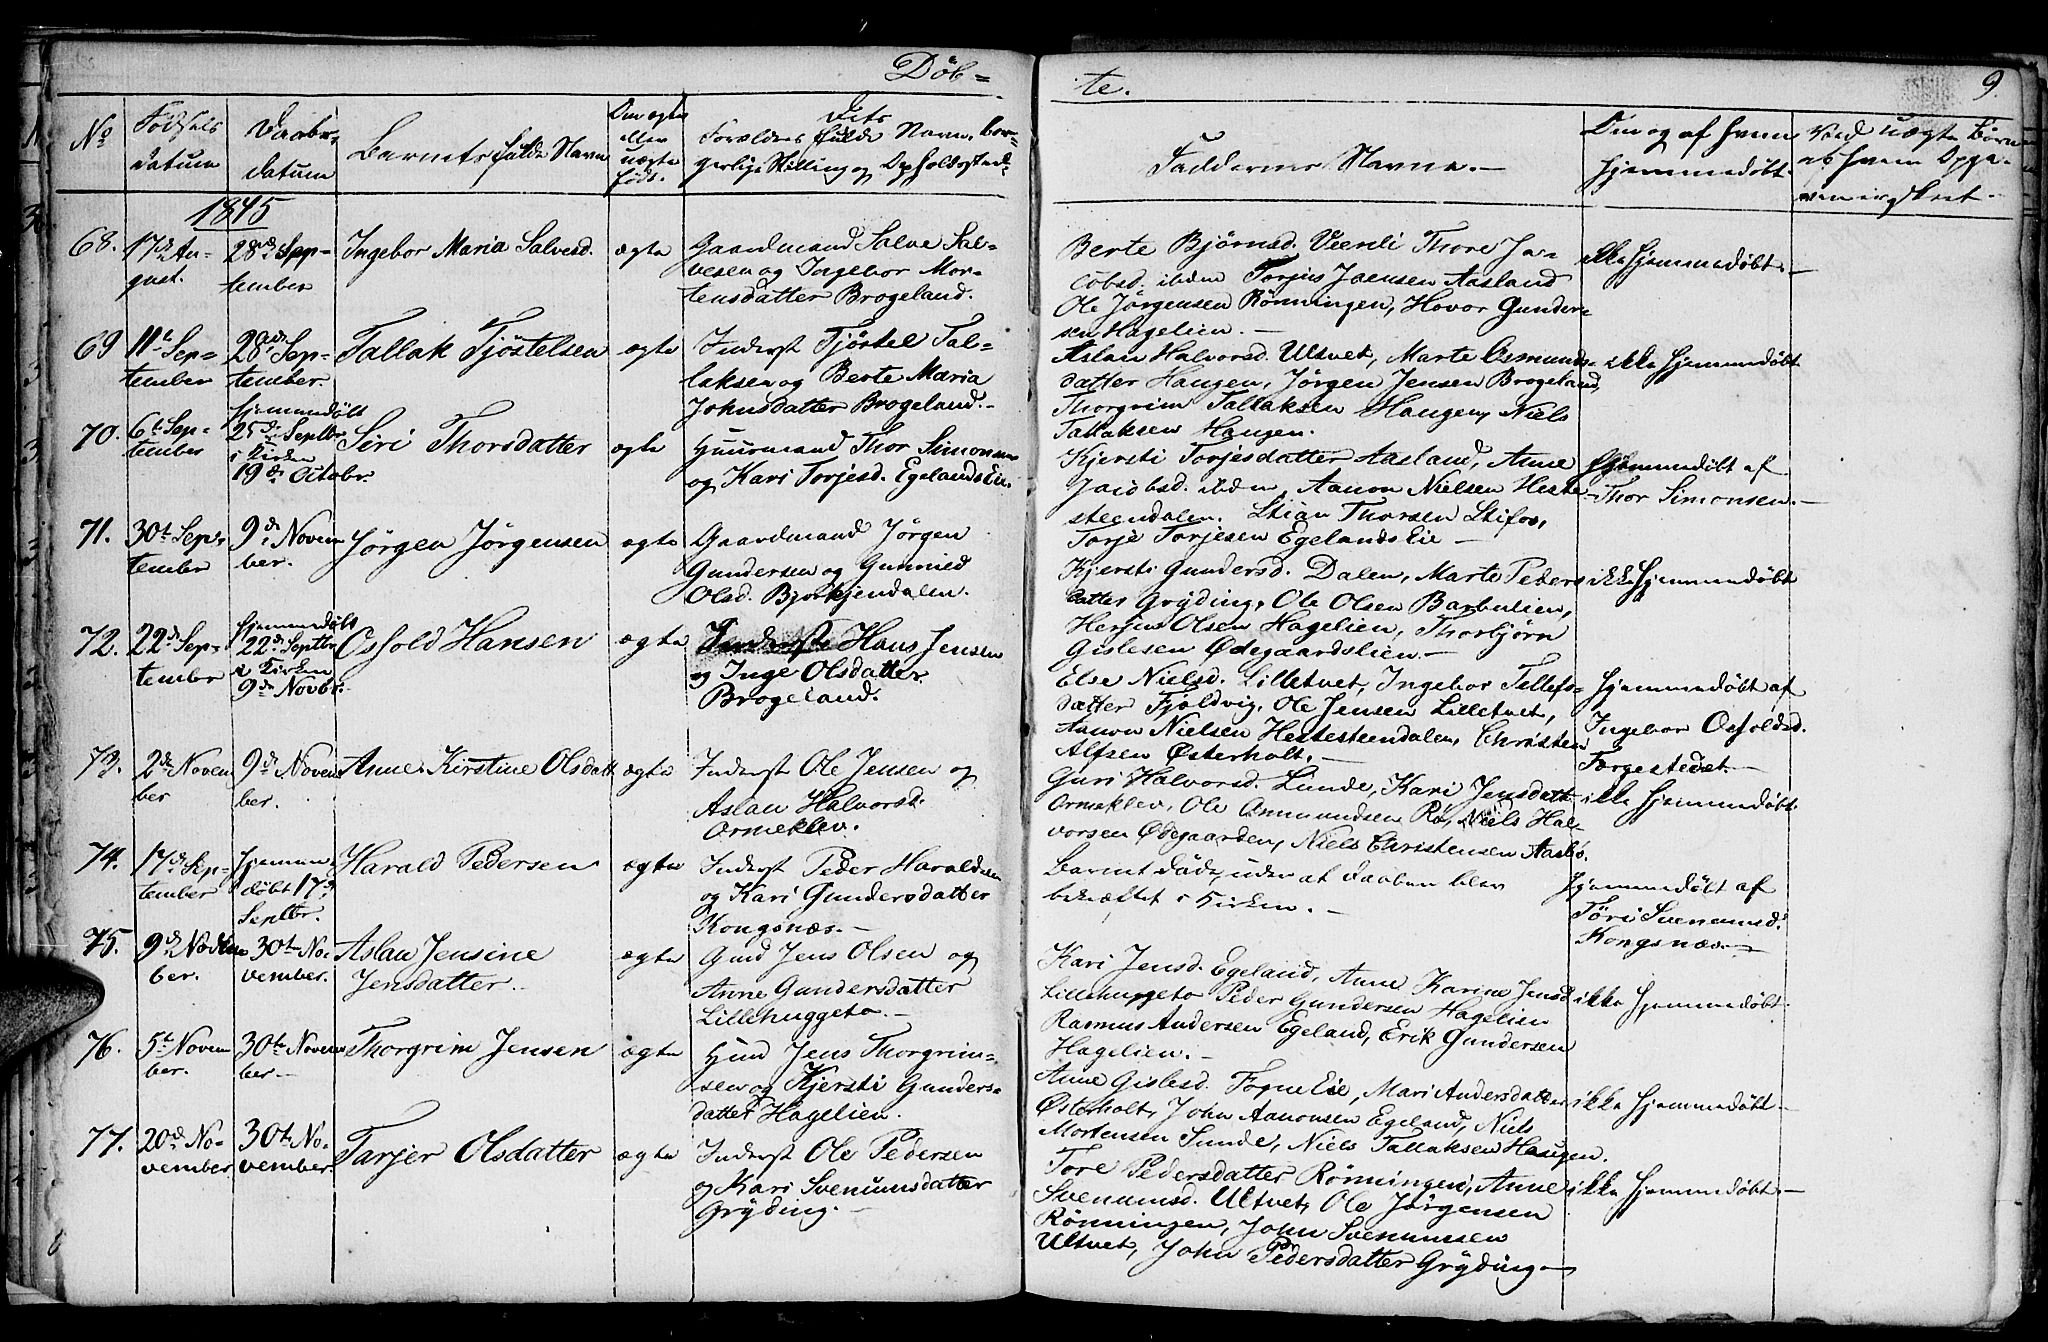 Døb-
te.
9.
No
Fødsels
datum
Daabs-
datum
Barnets fulde Navn
Om ægte
eller
uægte
født.
Dets
Forældres fulde Navn, bor-
gerlige Stilling og Opholdssted.
Faddernes Navne.-
Om og af hvem
hjemmedøbt.
Ved uægte Børn
af hvem Opga-
ven er skeet.-
1845
68. 17de Au-
gust.
28de Sep-
tember
Ingebor Maria Salvesd.
ægte
Gaardmand Salve Sal-
vesen og Ingebor Mor-
tensdatter Brogeland.
Berte Bjørnsd. Veenli Thore Ja-
cobsd. ibdm Torjus Jaensen Aasland
Ole Jørgensen Rönningen, Hovor Gunder-
sen Hagelien.-
ikke hjemmedøbt.-
69 11te Sep-
tember
28de Sep-
tember.
Tallak Tjöstelsen
ægte
Inderst Tjöstel Tal-
laksen og Berte Maria
Johnsdatter Brogeland.-
Aslau Halvorsd. Ultvet, Marte Osmunds-
datter Haugen, Jörgen Jensen Brogeland,
Thorgrim Tallaksen Haugen, Niels
Tallaksen Haugen.
ikke hjemmedøbt
70. 6te Sep-
tember
hjemmedøbt
25de Septbr.
i Kirken
19de Octobr.
Siri Thorsdatter
ægte
Huusmand Thor Simonsen
og Kari Torjesd. Egelands Eie.
Kjersti Torjesdatter Aasland, Anne
Jacobsd. ibdm, Aanon Nielsen Heste-
steendalen. Stian Thorsen Stifos,
Torje Torjesen Egelands Eie -
Hjemmedøbt af
Thor Simonsen.-
71. 30te Sep-
tember
9de Novem
ber.
Jörgen Jörgensen
ægte
Gaardmand Jörgen
Gundersen og Gunnild
Olsd. Bjorkjendalen.
Kjersti Gundersd. Dalen, Marte Peders
datter Gryding, Ole Olsen Barbulien,
Herjus Olsen Hagelien, Thorbjörn
Gislesen Ødegaardslien.-
ikke hjemmedøbt
72. 22de Sep-
tember
hjemmedøbt
22de Septbr
i Kirken
9de Novbr.
Osfold Hansen
ægte
Inderst Hans Jensen
og Inge Olsdatter
Brogeland.
Else Nielsd. Lilletvet, Ingebor Tellefs-
datter Fjeldvig, Ole Jensen Lilletvet,
Aanon Nielsen Hestesteendalen, Christen
Alfsen Østerholt.-
hjemmedøbt af
Ingebor Osfoldsd.
Torgestedet.-
73. 2de Novem
ber
9de Novem
ber.
Anne Kirstine Olsdatt.
ægte
Inderst Ole Jensen og
Aslau Halvorsd.
Ormeklev.
Guri Halvorsd. Lunde, Kari Jensdatt.
Ormeklev, Ole Ommundsen Rø, Niels Hal-
vorsen Ødegaarden, Niels Christensen Aasbö.
ikke hjemmedøbt.
74. 17de Sep-
tember
hjemme
døbt 17de
Septbr.
Harald Pedersen
ægte
Inderst Peder Haraldsen
og Kari Gundersdatter
Kongsnæs.-
Barnet døde, inden at Daaben blev
bekræftet i Kirken.-
hjemmedøbt af
Töri Svenumsd.
Kongsnæs.-
75. 9de Novem
ber.
30te No-
vember.
Aslau Jensine
Jensdatter.
ægte
Gmd Jens Olsen og
Anne Gundersdatter
Lillehuggeto.-
Kari Jensd. Egeland, Anne Karine Jensd
Lillehuggeto Peder Gundersen Hagelien
Rasmus Andersen Egeland, Erik Gundersen
Hagelien.-
ikke hjemmedøbt.
76. 5te Novem
ber.
30te Novem
ber.-
Thorgrim Jensen
ægte
Hmd Jens Thorgrim-
sen og Kjersti Gunders-
datter Hagelien.
Anne Gislesd. Fogne Eie, Mari Andersdatter
Østerholt, John Aanonsen Egeland, Niels
Mortensen Sunde, Niels Tallaksen Haugen.
ikke hjemmedøbt.-
77. 20de No-
vember
30te No-
vember.
Tarjer Olsdatter
ægte
Inderst Ole Pedersen
og Kari Svenumsdatter
Gryding.-
Tore Pedersdatter Rönningen, Anne
Svenumsd. Ultvet, Ole Jörgensen
Rönningen, John Svenumsen
Ultvet, John Pedersdatter Gryding.-
ikke hjemmedøbt.-